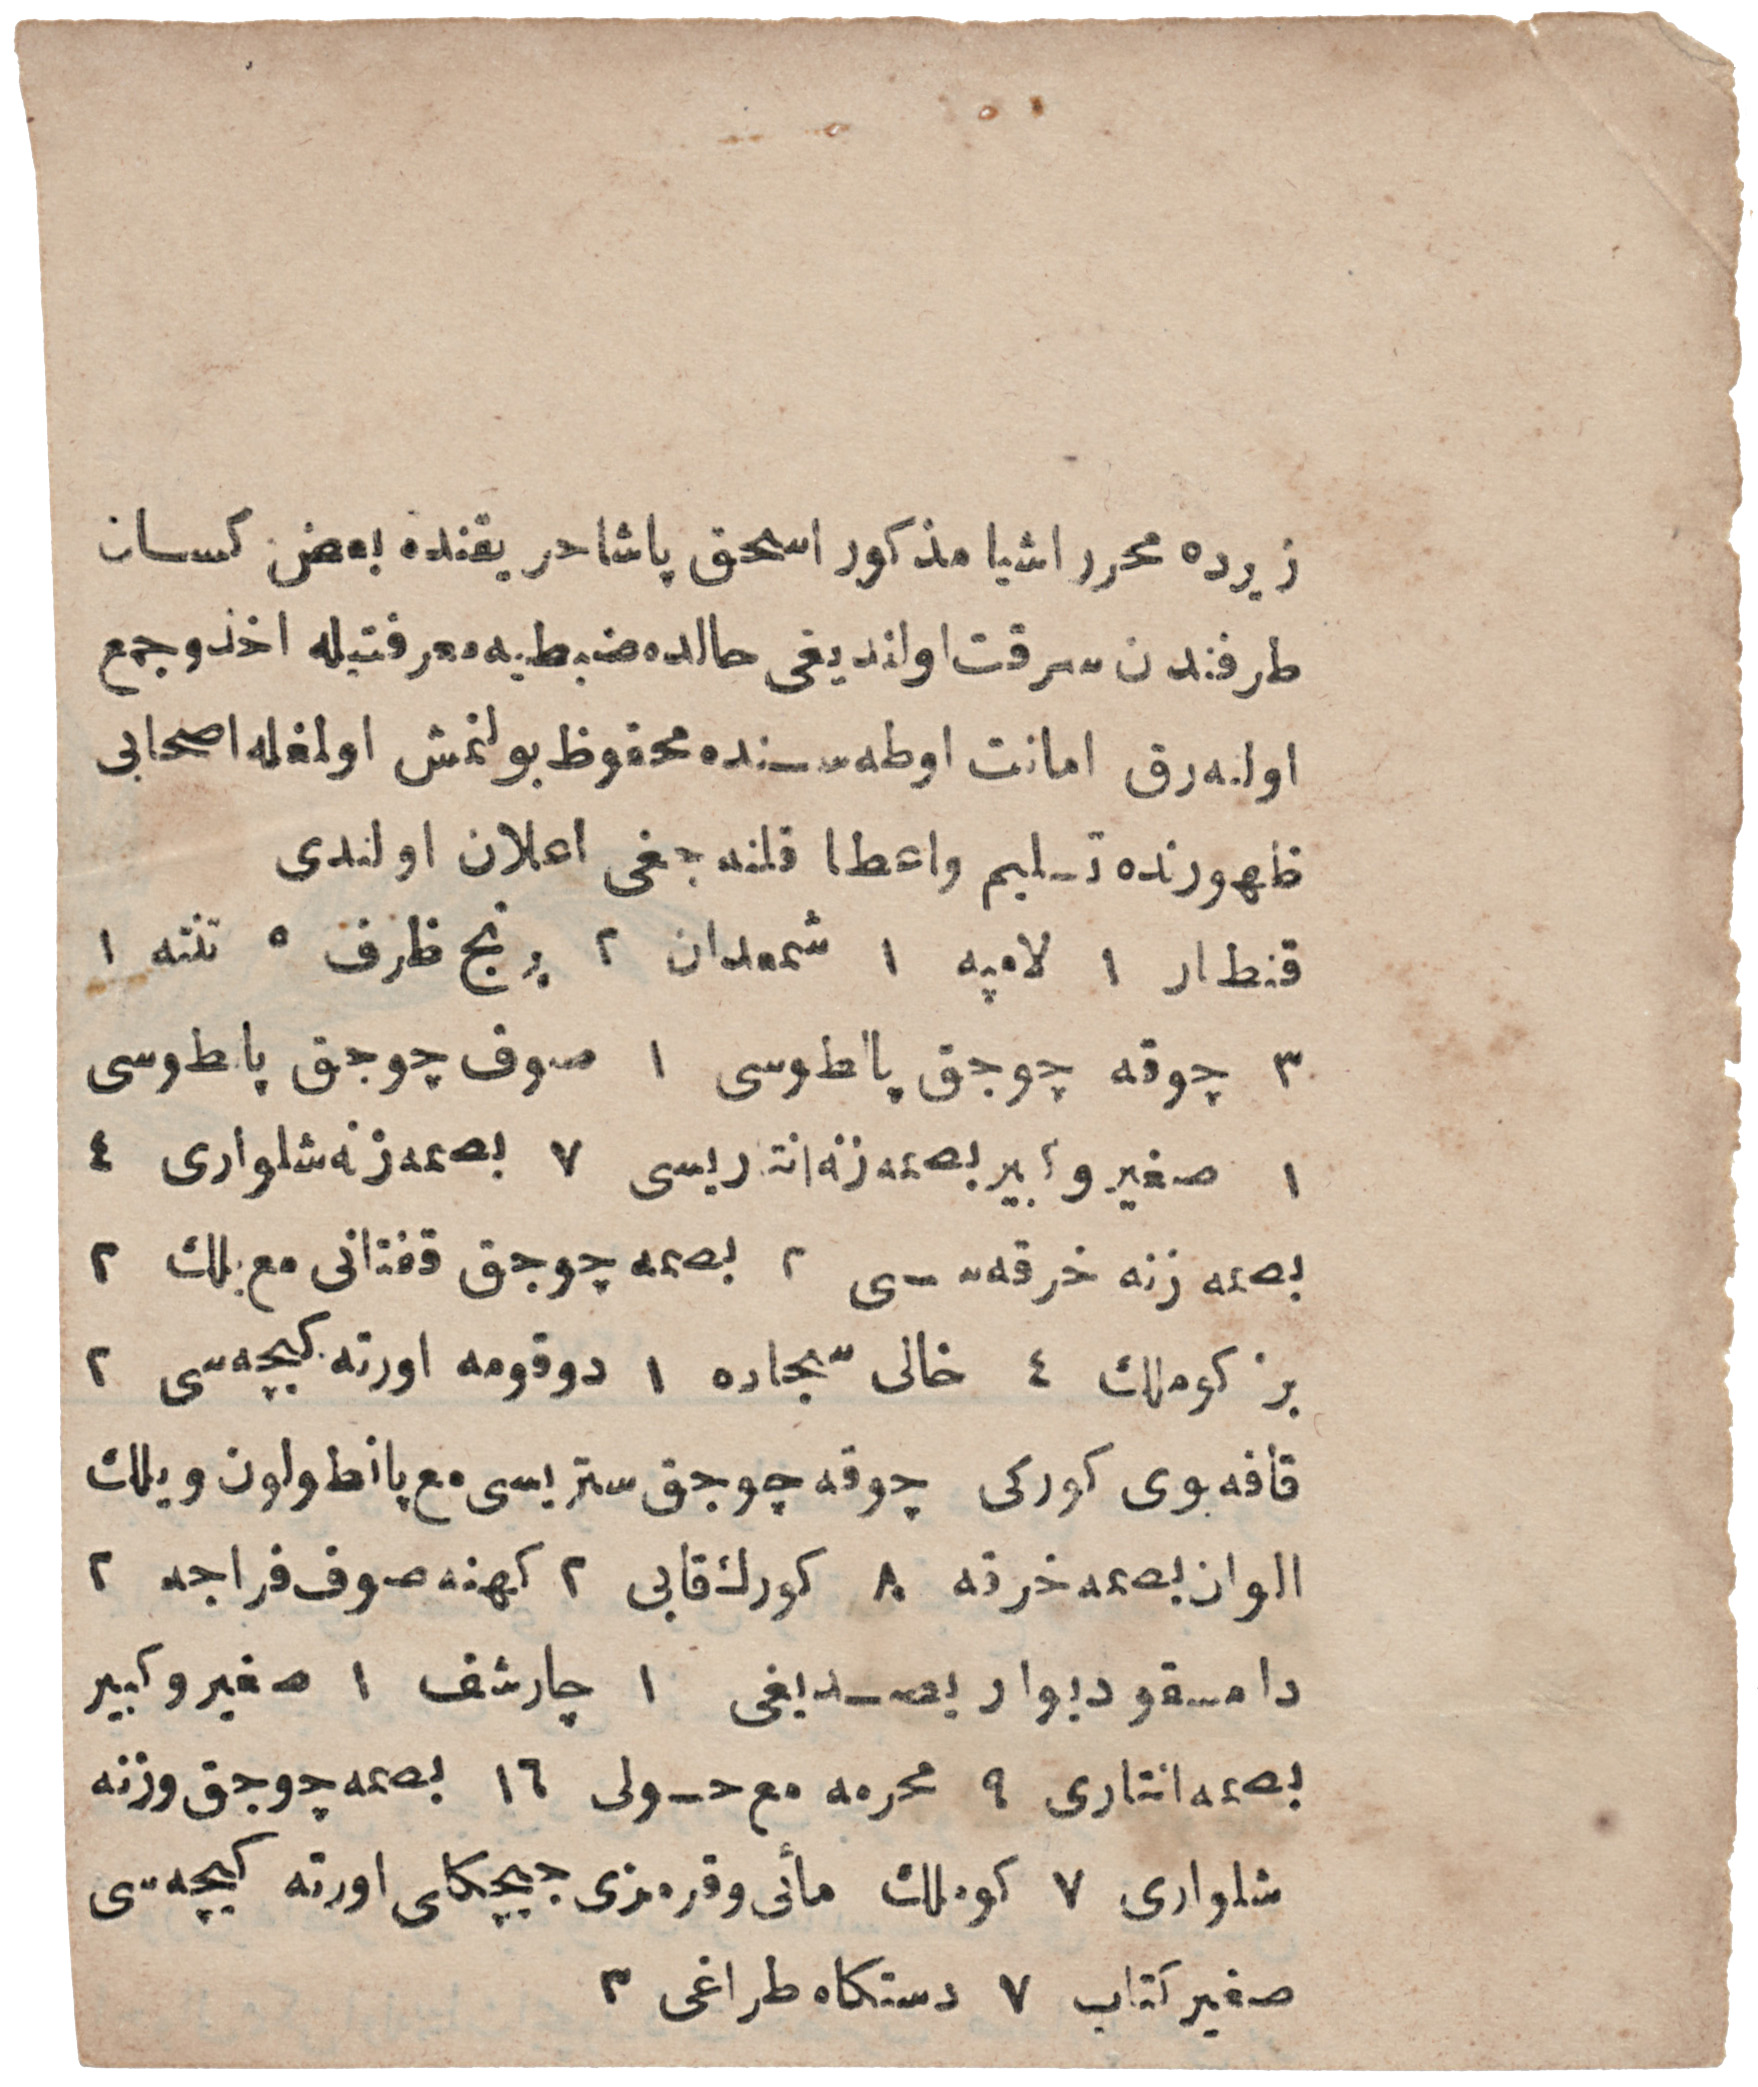 زیرده محرر اشیا مذکور اسحق پاشا حریقنده بعض کسان
طرفندن سرقت اولندیغی حالده ضبطیه معرفتیله اخذ وجمع
اولنه‌رق امانت اوطه‌سنده محفوظ بولنمش اولغله اصحابی
ظهورنده تسلیم واعطا قلنه‌جغی اعلان اولندی
قنطار ١ لامپه ١ شمعدان ٢ پرنج ظرف ٥ تنته ١
٣ چوقه چوجق پالطوسی ١ صوف چوجق پالطوسی
١ صغیر وکبیر بصمه زنه انتاریسی ٧ بصمه زنه شلواری ٤
بصمه زنه خرقه‌سی ٢ بصمه چوجق قفتانی مع یلك ٢
بز کوملك ٤ خالی سجاده ١ دوقومه اورته کیچه‌سی ٢
قافه بوی کورکی چوقه چوجق ستریسی مع پانطولون ویلك
الوان بصمه خرقه ٨ کورك قابی ٢ کهنه صوف فراجه ٢
دامسقو دیوار یصدیغی ١ چارشف ١ صغیر وکبیر
بصمه انتاری ٩ محرمه مع حولی ١٦ بصمه چوجق وزنه
شلواری ٧ کوملك مائی وقرمزی چیچکلی اورته کیچه‌سی
صغیر کتاب ٧ دستکاه طراغی ٣